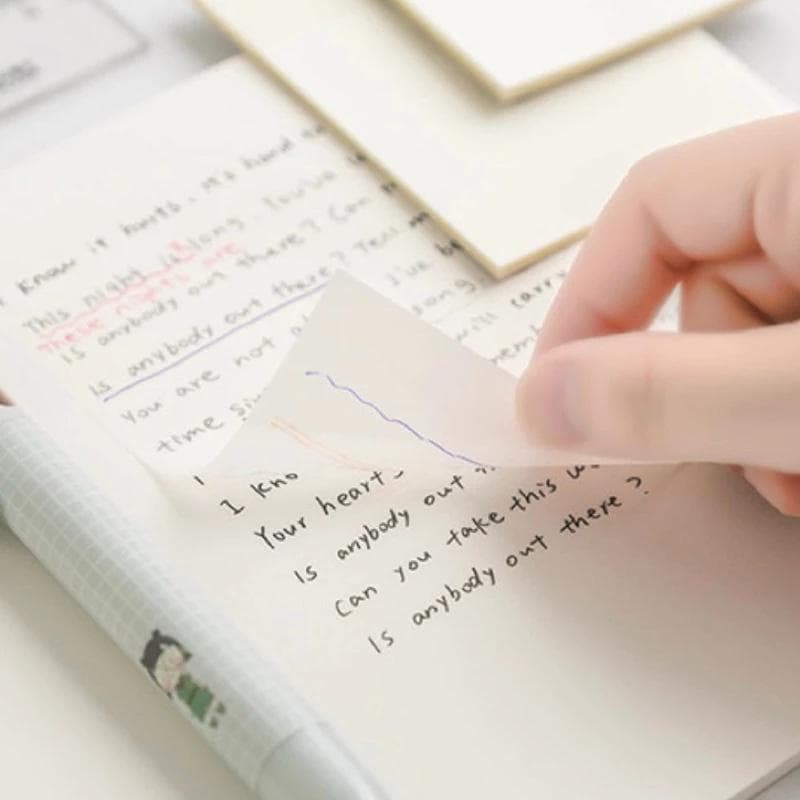 know it hurts. It's hard
This night is long. You've
These nights are
Is anybody out there? Can
Is anybody out there? Tell
You are not
time
I've
song
will carry
I kno
Your heart
Is anybody out
Can you take this
Is anybody out there?